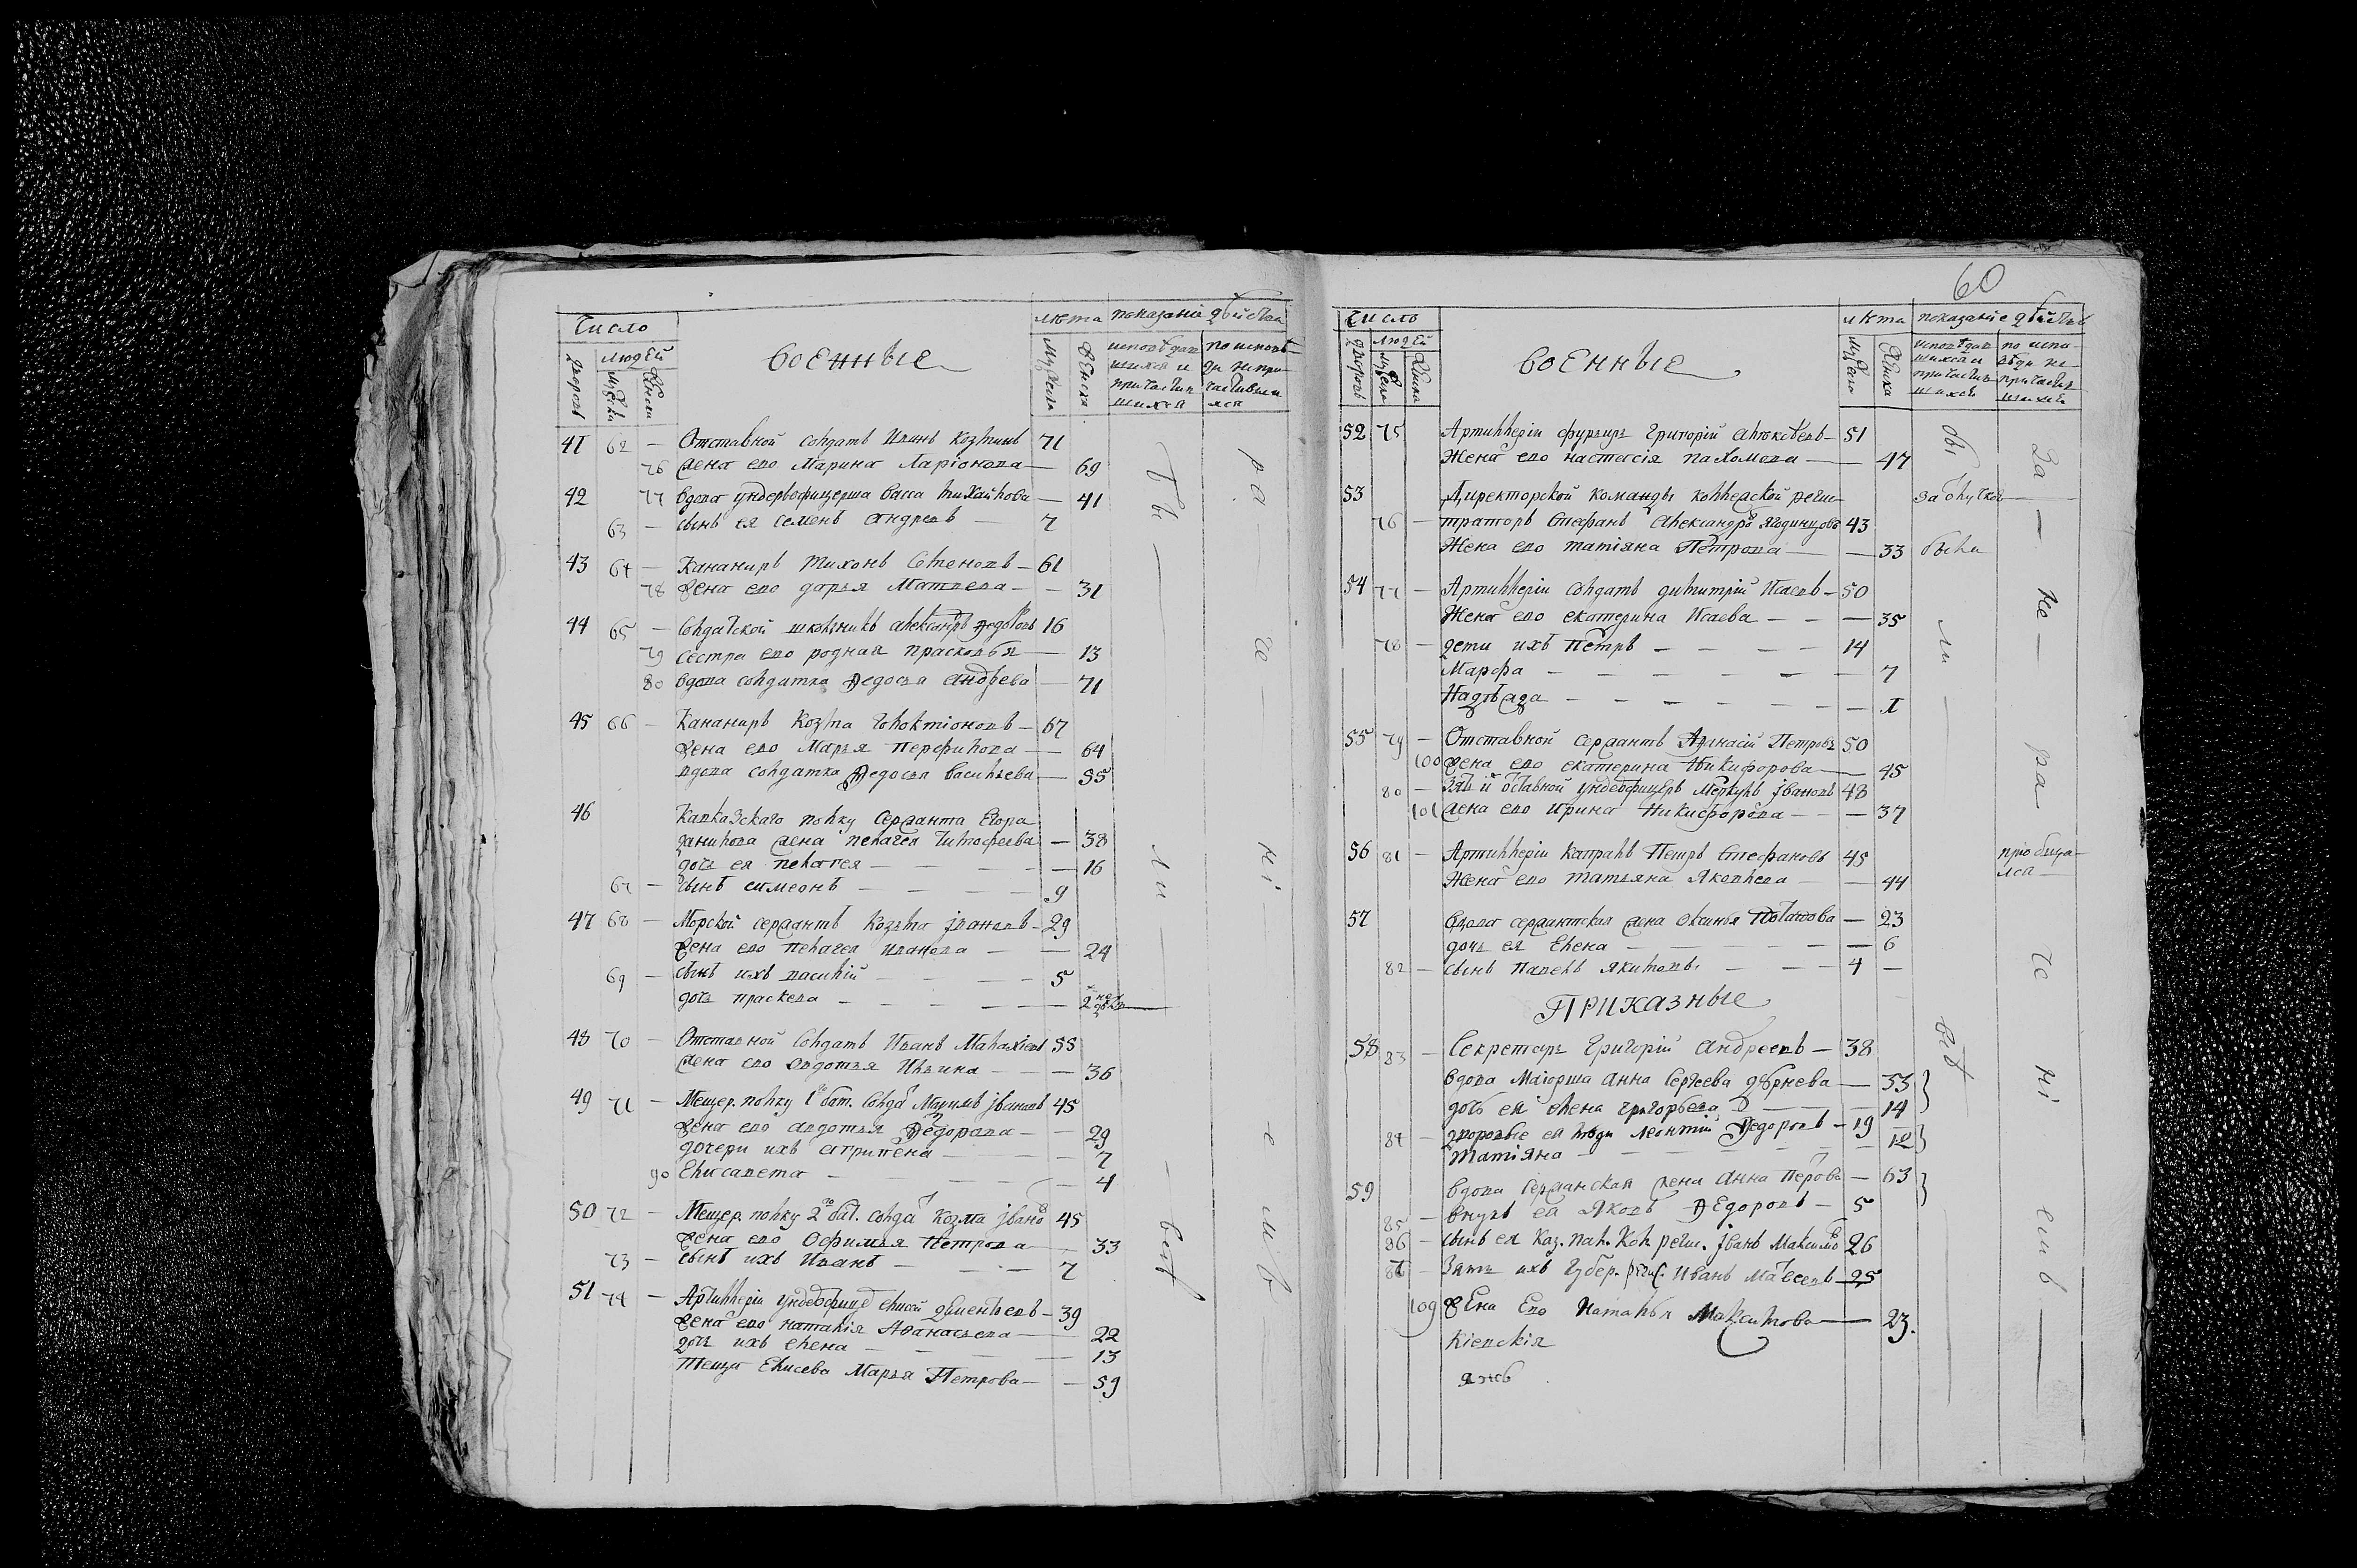 Число
людей
дворовъ
мужеска
женска
военные
лѣта
мужеска
женска
показаніе дѣйства
исповѣдав
шихся и
причастив
шихся
по исповѣ
ди непри
частивши
хся
41 62 — Отставной солдатъ Иванъ Козминъ 71
76 жена ево Марина Ларіонова — 69
42 77 вдова ундеръофицерша васса михайлова — 41
63 — сынъ ея семенъ андреевъ — 7
43 64 — Кананиръ тихонъ Семеновъ — 61
78 жена ево дарья Матвеева — 31
44 65 — Солдатской школникъ александръ Ѳедотовъ 16
79 сестра ево родная прасковья — 13
80 вдова солдатка Ѳедосья андреева — 71
45 66 — Кананиръ Козма 67
жена ево Марья Перфилова — 64
вдова солдатка Ѳедосья васильева — 55
46 Кавказского полку Сержанта Егора
данилова жена пелагея тимофеева — 38
дочь ея пелагея — 16
67 — сынъ симеонъ — 9
47 68 — Морской сержантъ Козма Івановъ — 29
жена ево пелагея иванова — 24
69 — сынъ ихъ василій — 5
дочь праскева — 2
48 70 — Отставной Солдатъ Иванъ Малахіевъ 55
жена ево авдотья Ильина — 36
49 71 — Мещер. полку 1го бат. Солда Івановъ 45
жена ево авдотья Ѳедорова — 29
дочери ихъ агрипена — 7
90 Елисавета — 4
50 72 — Мещер. полку 2го бат. солда Козма Івано 45
жена ево Офимья Петрова — 33
73 — сынъ ихъ Иванъ — 7
51 74 — Артиллеріи ундеофице елисей дементьевъ — 39
жена ево наталія Аѳанасьева — 22
дочь ихъ елена — 13
Теща Елисева Марья Петрова — 59
бы — ли — вет
ра — че — ні — е мъ
60
Число
людей
дворовъ
мужеска
женска
военные
лѣта
мужеска
женска
показаніе дѣйства
исповѣдав
шихся и
причастив
шихся
по испо
вѣди не
причастив
шихся
52 75 Артиллеріи фурьиръ Григорій 51
Жена ево настасія пахомова — 47
53 Директорской команды коллежской реги
76 — страторъ Стефанъ Александро 43
Жена ево татіяна Петрова — 33 была
54 77 — Артиллеріи солдатъ димитрій Исаевъ — 50
Жена ево екатерина Исаева — 35
78 — дети ихъ Петръ — 14
Марфа — 7
Надѣжда — 1
55 79 — Отставной сержантъ Аѳанасій Петровъ 50
100 жена ево екатерина Никифорова — 45
80 — Зять и оставной ундеофицеръ Меркулъ Івановъ 48
101 жена ево ирина Никифорова — 37
56 81 — Артиллеріи Капралъ Петръ Стефановъ 45
Жена ево татьяна Яковлева — 44
57 вдова сержантская жена оксинья Потапова — 23
дочь ея Елена — 6
82 — сынъ павелъ якимовъ — 4 —
приказные
58 83 — Секретарь Григорій Андреевъ — 38
вдова Маіорша Анна Сергеева — 53
дочь ея елена григорьева — 14
84 — дворовые ея люди леонтій Ѳедоровъ — 19
татіяна — 12
59 вдова сержанская жена анна Перова — 63
85 — внукъ ея Яковъ Ѳедоровъ — 5
86 — сынъ ея Каз. пал. Кол. реги. Іванъ Максимо 26
Зять ихъ Губер. регис. Иванъ Матвеевъ 25
109 жена Ево Наталья Максимова — 23.
Кіевскія
бы — ли — вет
за — не — ра че ні емъ